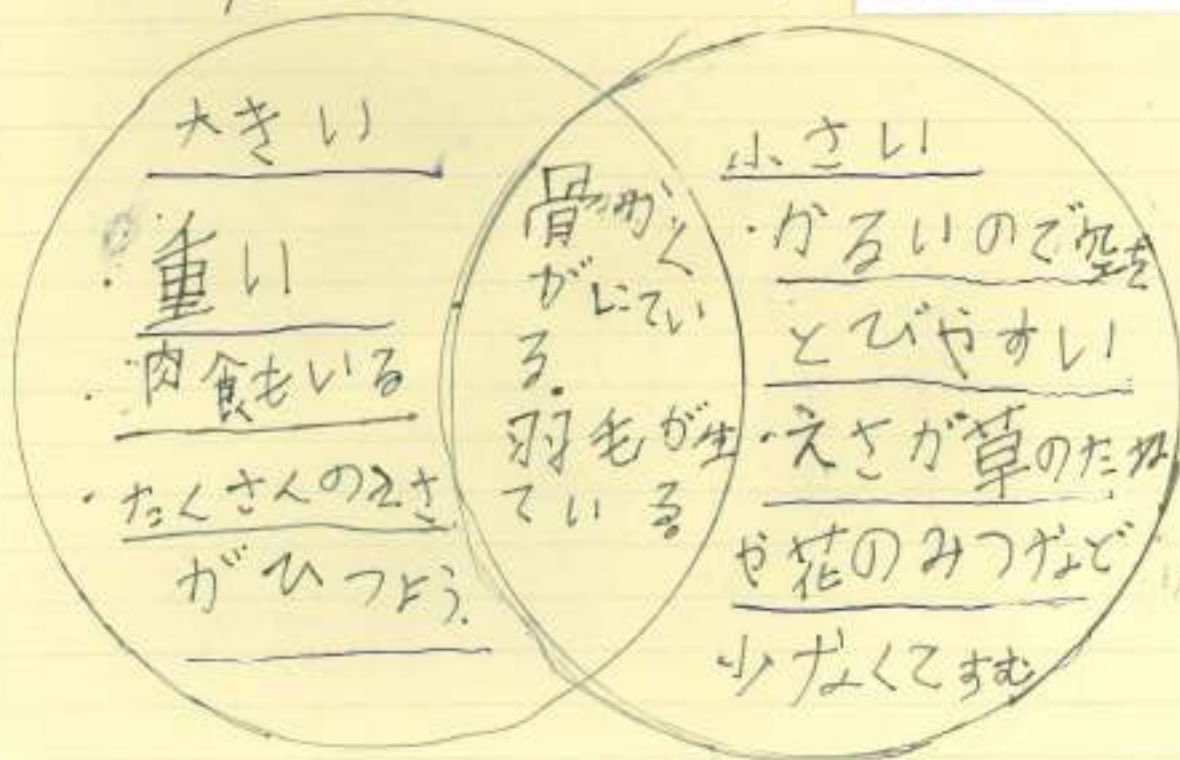 大きい
・重い
・肉食もいる
・たくさんのえさ
がひつよう.
骨かく
がにてい
る.
羽毛が生
ている
小さい
・かるいので空を
とびやすい
・えさが草のたね
や花のみつなど
少なくてすむ